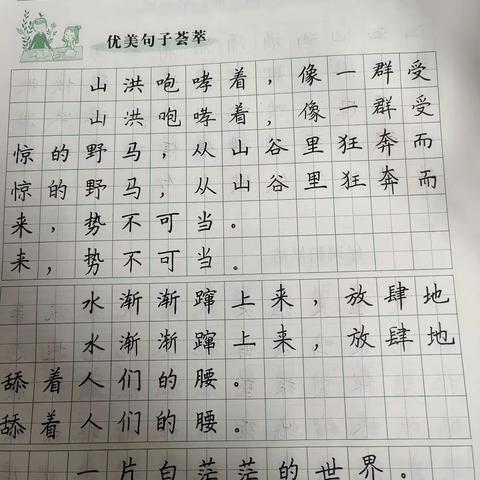 优美句子荟萃
山洪咆哮着，像一群受
山洪咆哮着，像一群受
惊的野马，从山谷里狂奔而
惊的野马，从山谷里狂奔而
来，势不可当。
来，势不可当。
水渐渐蹿上来，放肆地
水渐渐蹿上来，放肆地
舔着人们的腰。
舔着人们的腰。
一片白茫茫的世界。